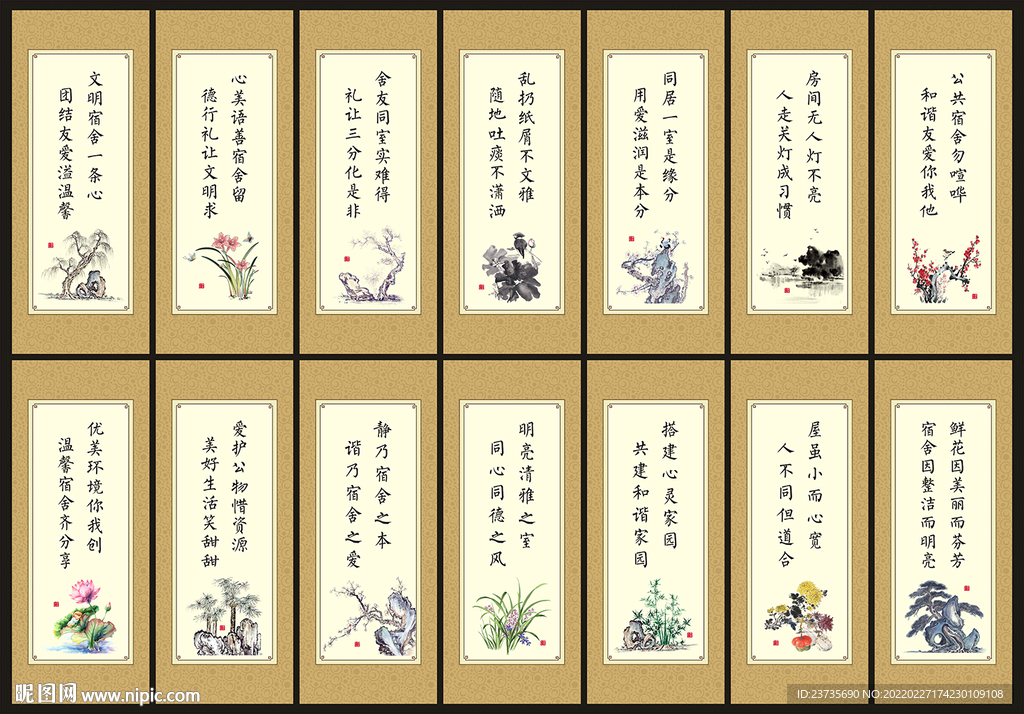 文明宿舍一条心
团结友爱溢温馨
心美语善宿舍留
德行礼让文明求
舍友同室实难得
礼让三分化是非
乱扔纸屑不文雅
随地吐痰不潇洒
同居一室是缘分
用爱滋润是本分
房间无人灯不亮
人走关灯成习惯
公共宿舍勿喧哗
和谐友爱你我他
优美环境你我创
温馨宿舍齐分享
爱护公物惜资源
美好生活笑甜甜
静乃宿舍之本
谐乃宿舍之爱
明亮清雅之室
同心同德之风
搭建心灵家园
共建和谐家园
屋虽小而心宽
人不同但道合
鲜花因美丽而芬芳
宿舍因整洁而明亮
昵图网 www.nipic.com
ID:23735690 NO:20220227174230109108